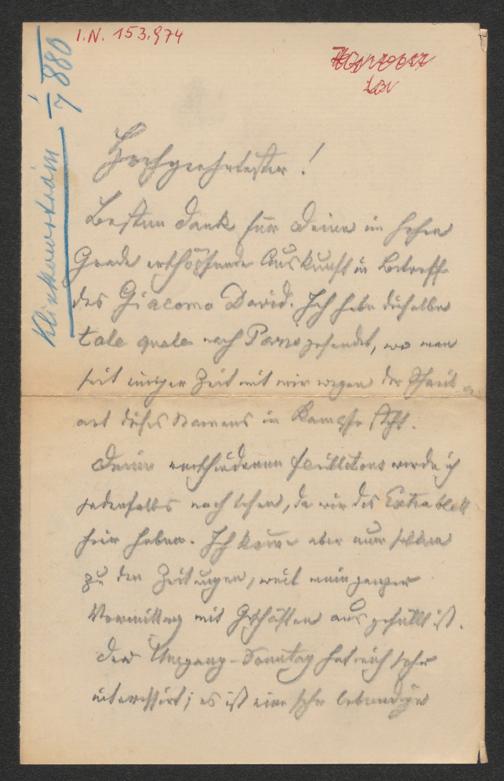 I.N. 153.974
Klinkowström 1/7 880
Hochgeehrtester!
Besten Dank für Deine im hohen
Grade erschöpfende Auskunft in Betreff
des Giacomo David. Ich habe dieselbe
tale quale nach Paris gesendet, wo man
seit einiger Zeit mit mir wegen der Schreib-
art dieses Namens in Kampfe steht.
Deine verschiedenen Feuilletons werde ich
jedenfalls nachsehen, da wir das Extrablatt
hier haben. Ich komme aber nur selten
zu den Zeitungen, weil mein ganzer
Vormittag mit Geschäften ausgefüllt ist.
Der Umgang-Sonntag hat mich sehr
interessirt; es ist eine sehr lebendige